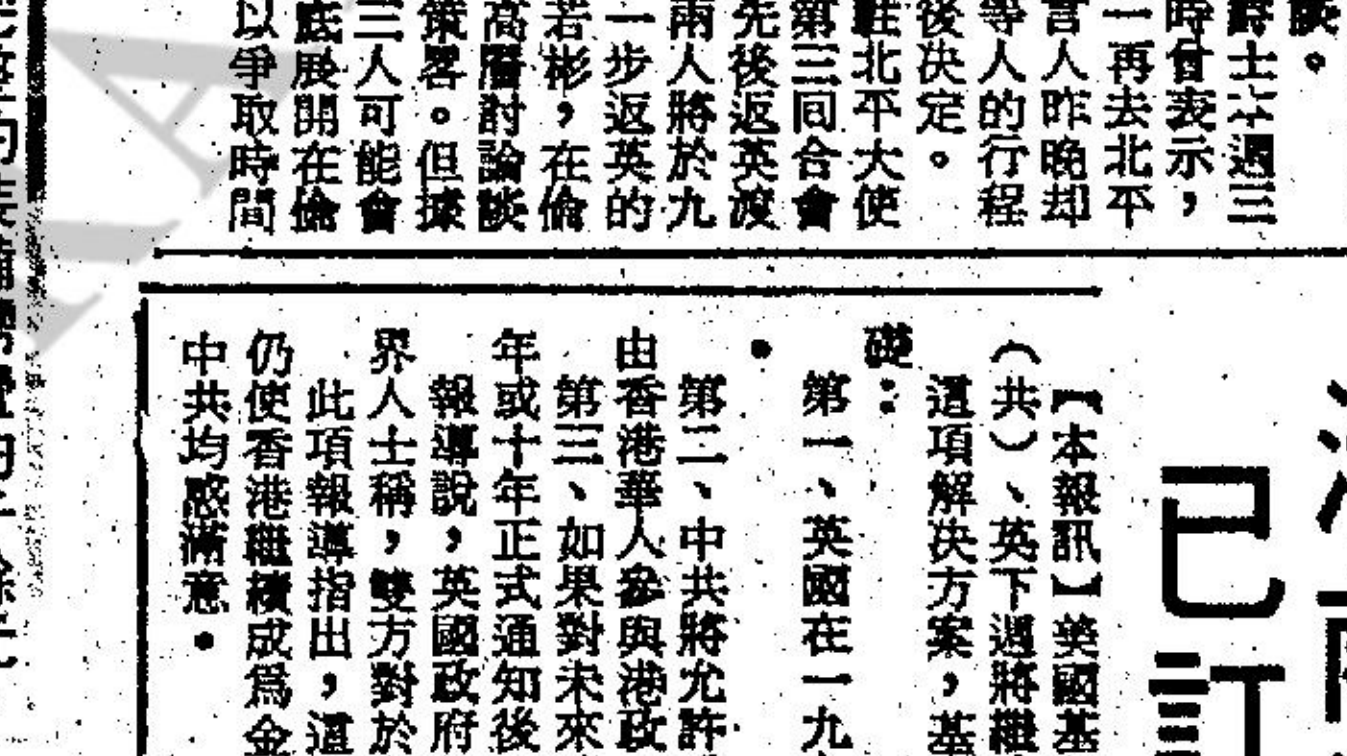 談。
爵士六週三
時曾表示，
一再去北平
言人昨晚却
等人的行程
後決定。
駐北平大使
第三回合會
先後返英渡
兩人將於九
一步返英的
若彬，在倫
高層討論談
策畧。但據
三人可能會
底展開在倫
以爭取時間
已訂
【本報訊】美國基
（共）、英下週將繼
這項解決方案，基
礎：
第一、英國在一九
。
第二、中共將允許
由香港華人參與港政
第三、如果對未來
年或十年正式通知後
報導說，英國政府
界人士稱，雙方對於
此項報導指出，這
仍使香港繼續成爲金
中共均感滿意。